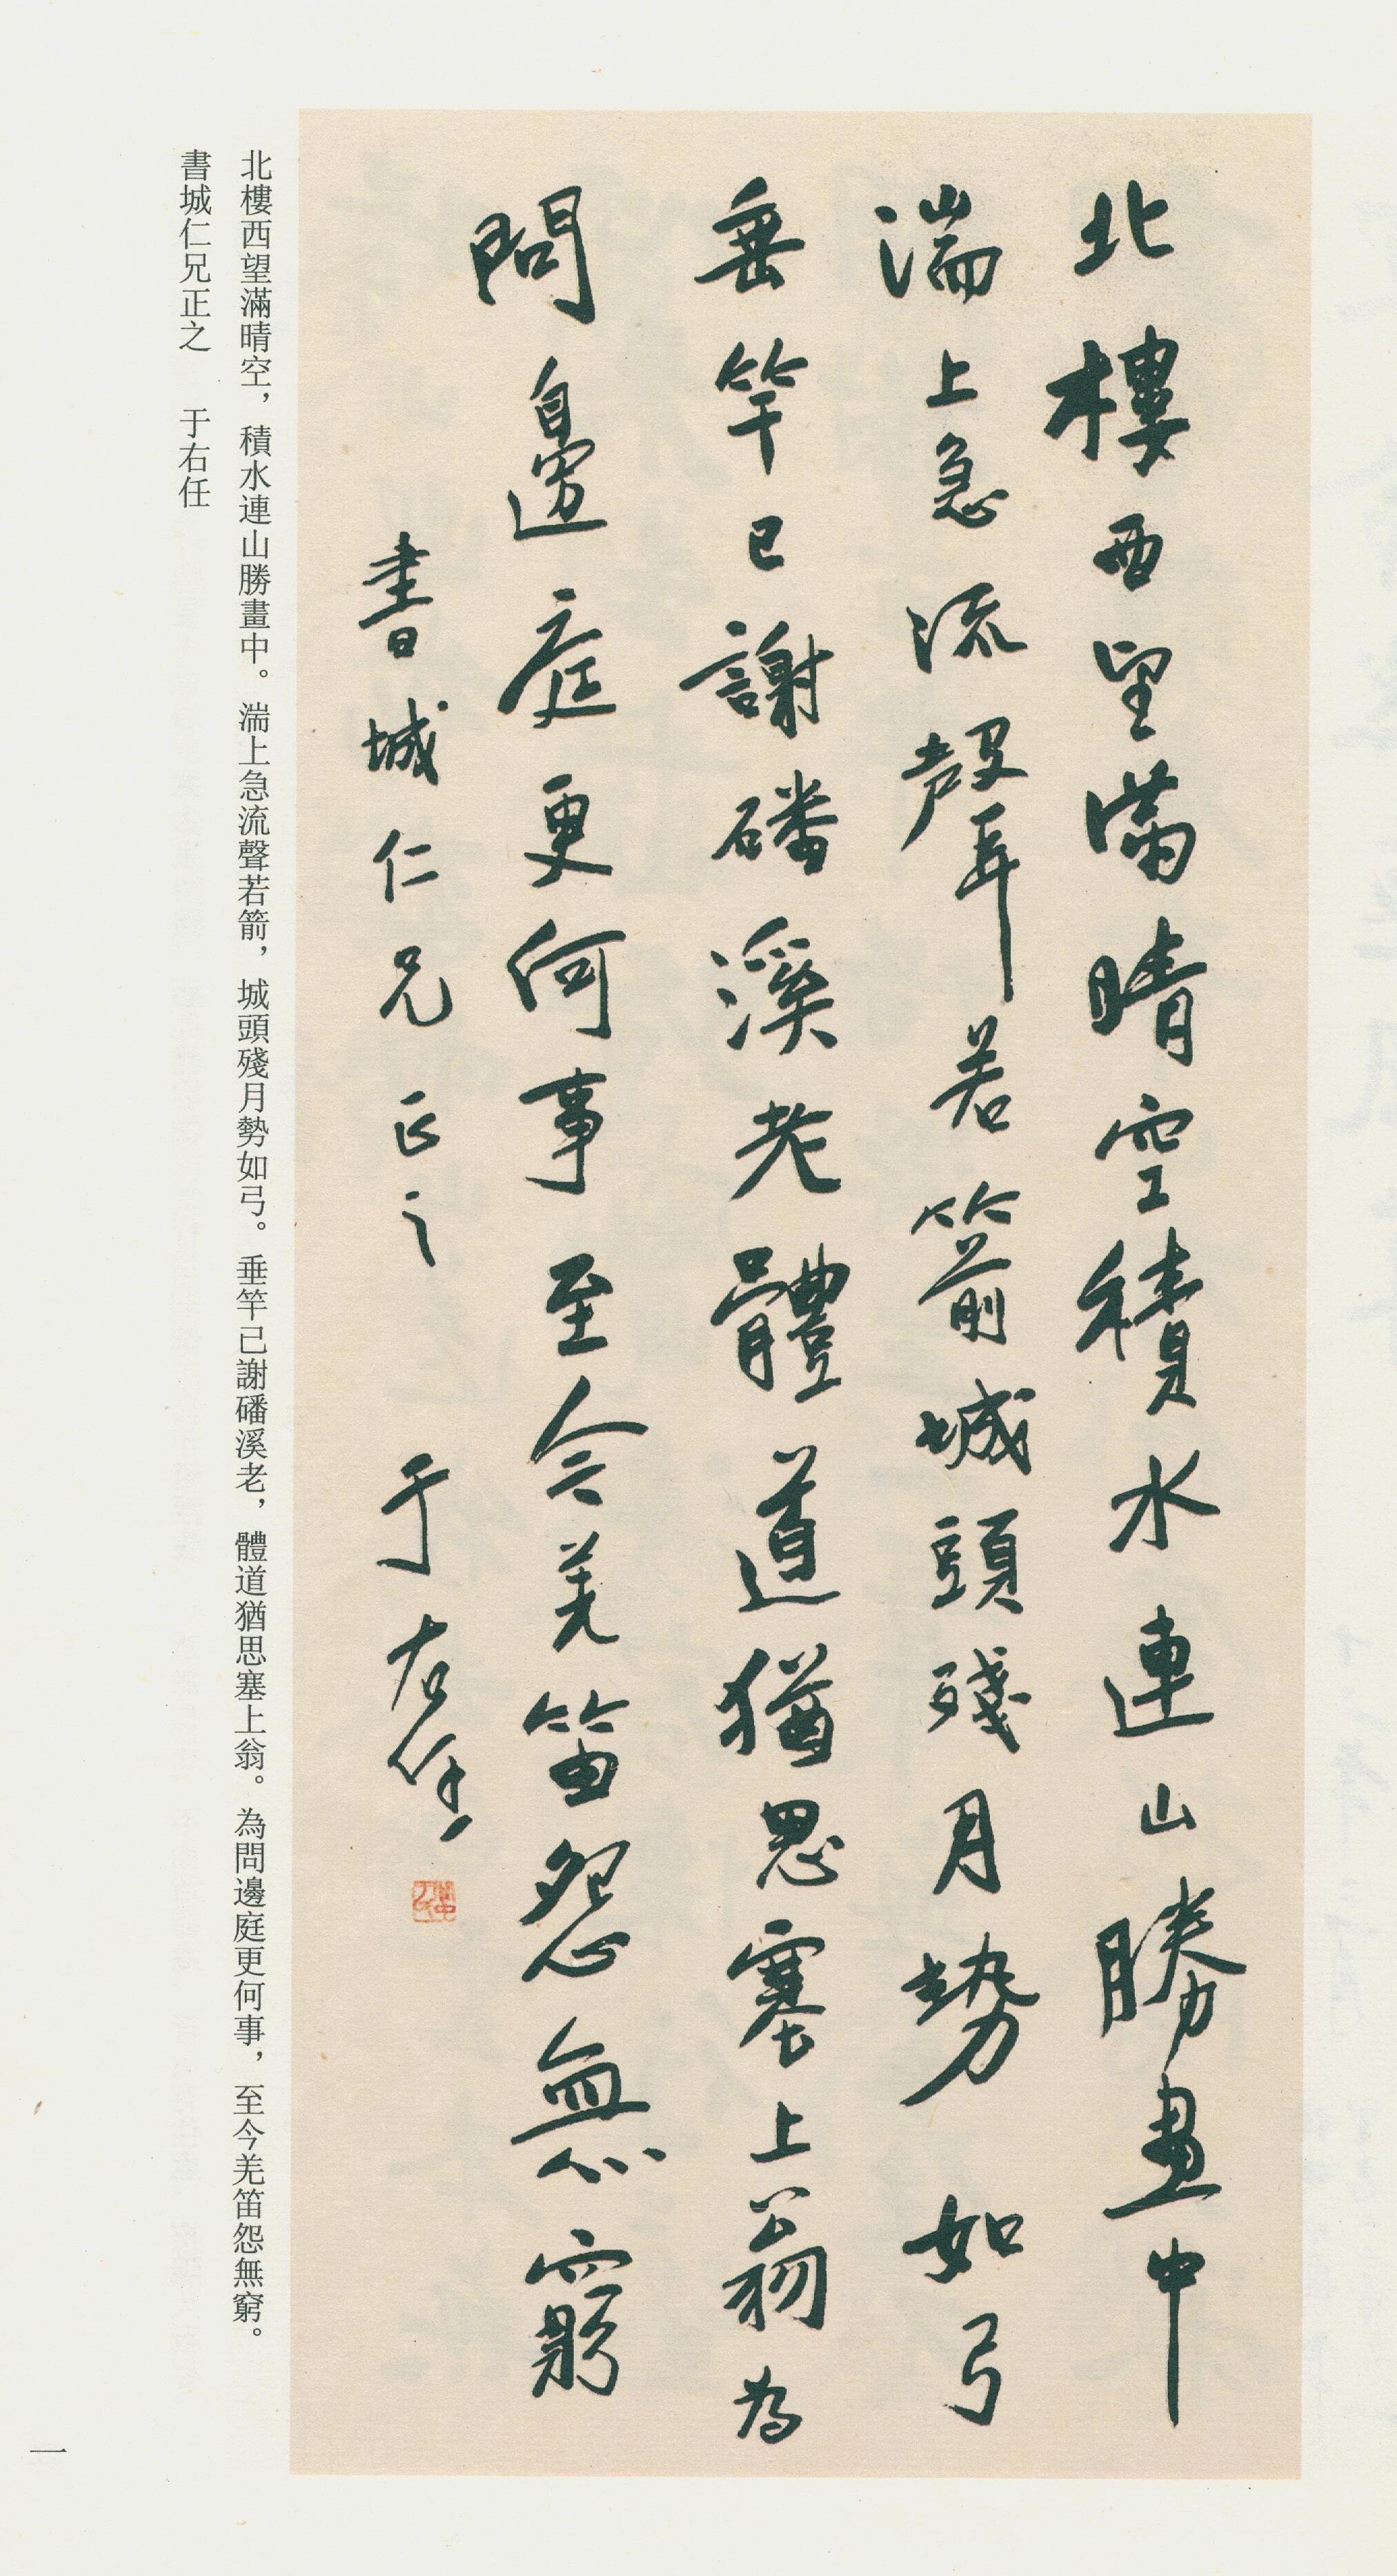 北樓西望滿晴空積水連山勝畫中
湍上急流聲若箭城頭殘月勢如弓
垂竿已謝磻溪老體道猶思塞上翁為
問邊庭更何事至今羌笛怨無窮
書城仁兄正之 于右任
北樓西望滿晴空，積水連山勝畫中。湍上急流聲若箭，城頭殘月勢如弓。垂竿已謝磻溪老，體道猶思塞上翁。為問邊庭更何事，至今羌笛怨無窮。
書城仁兄正之 于右任
一